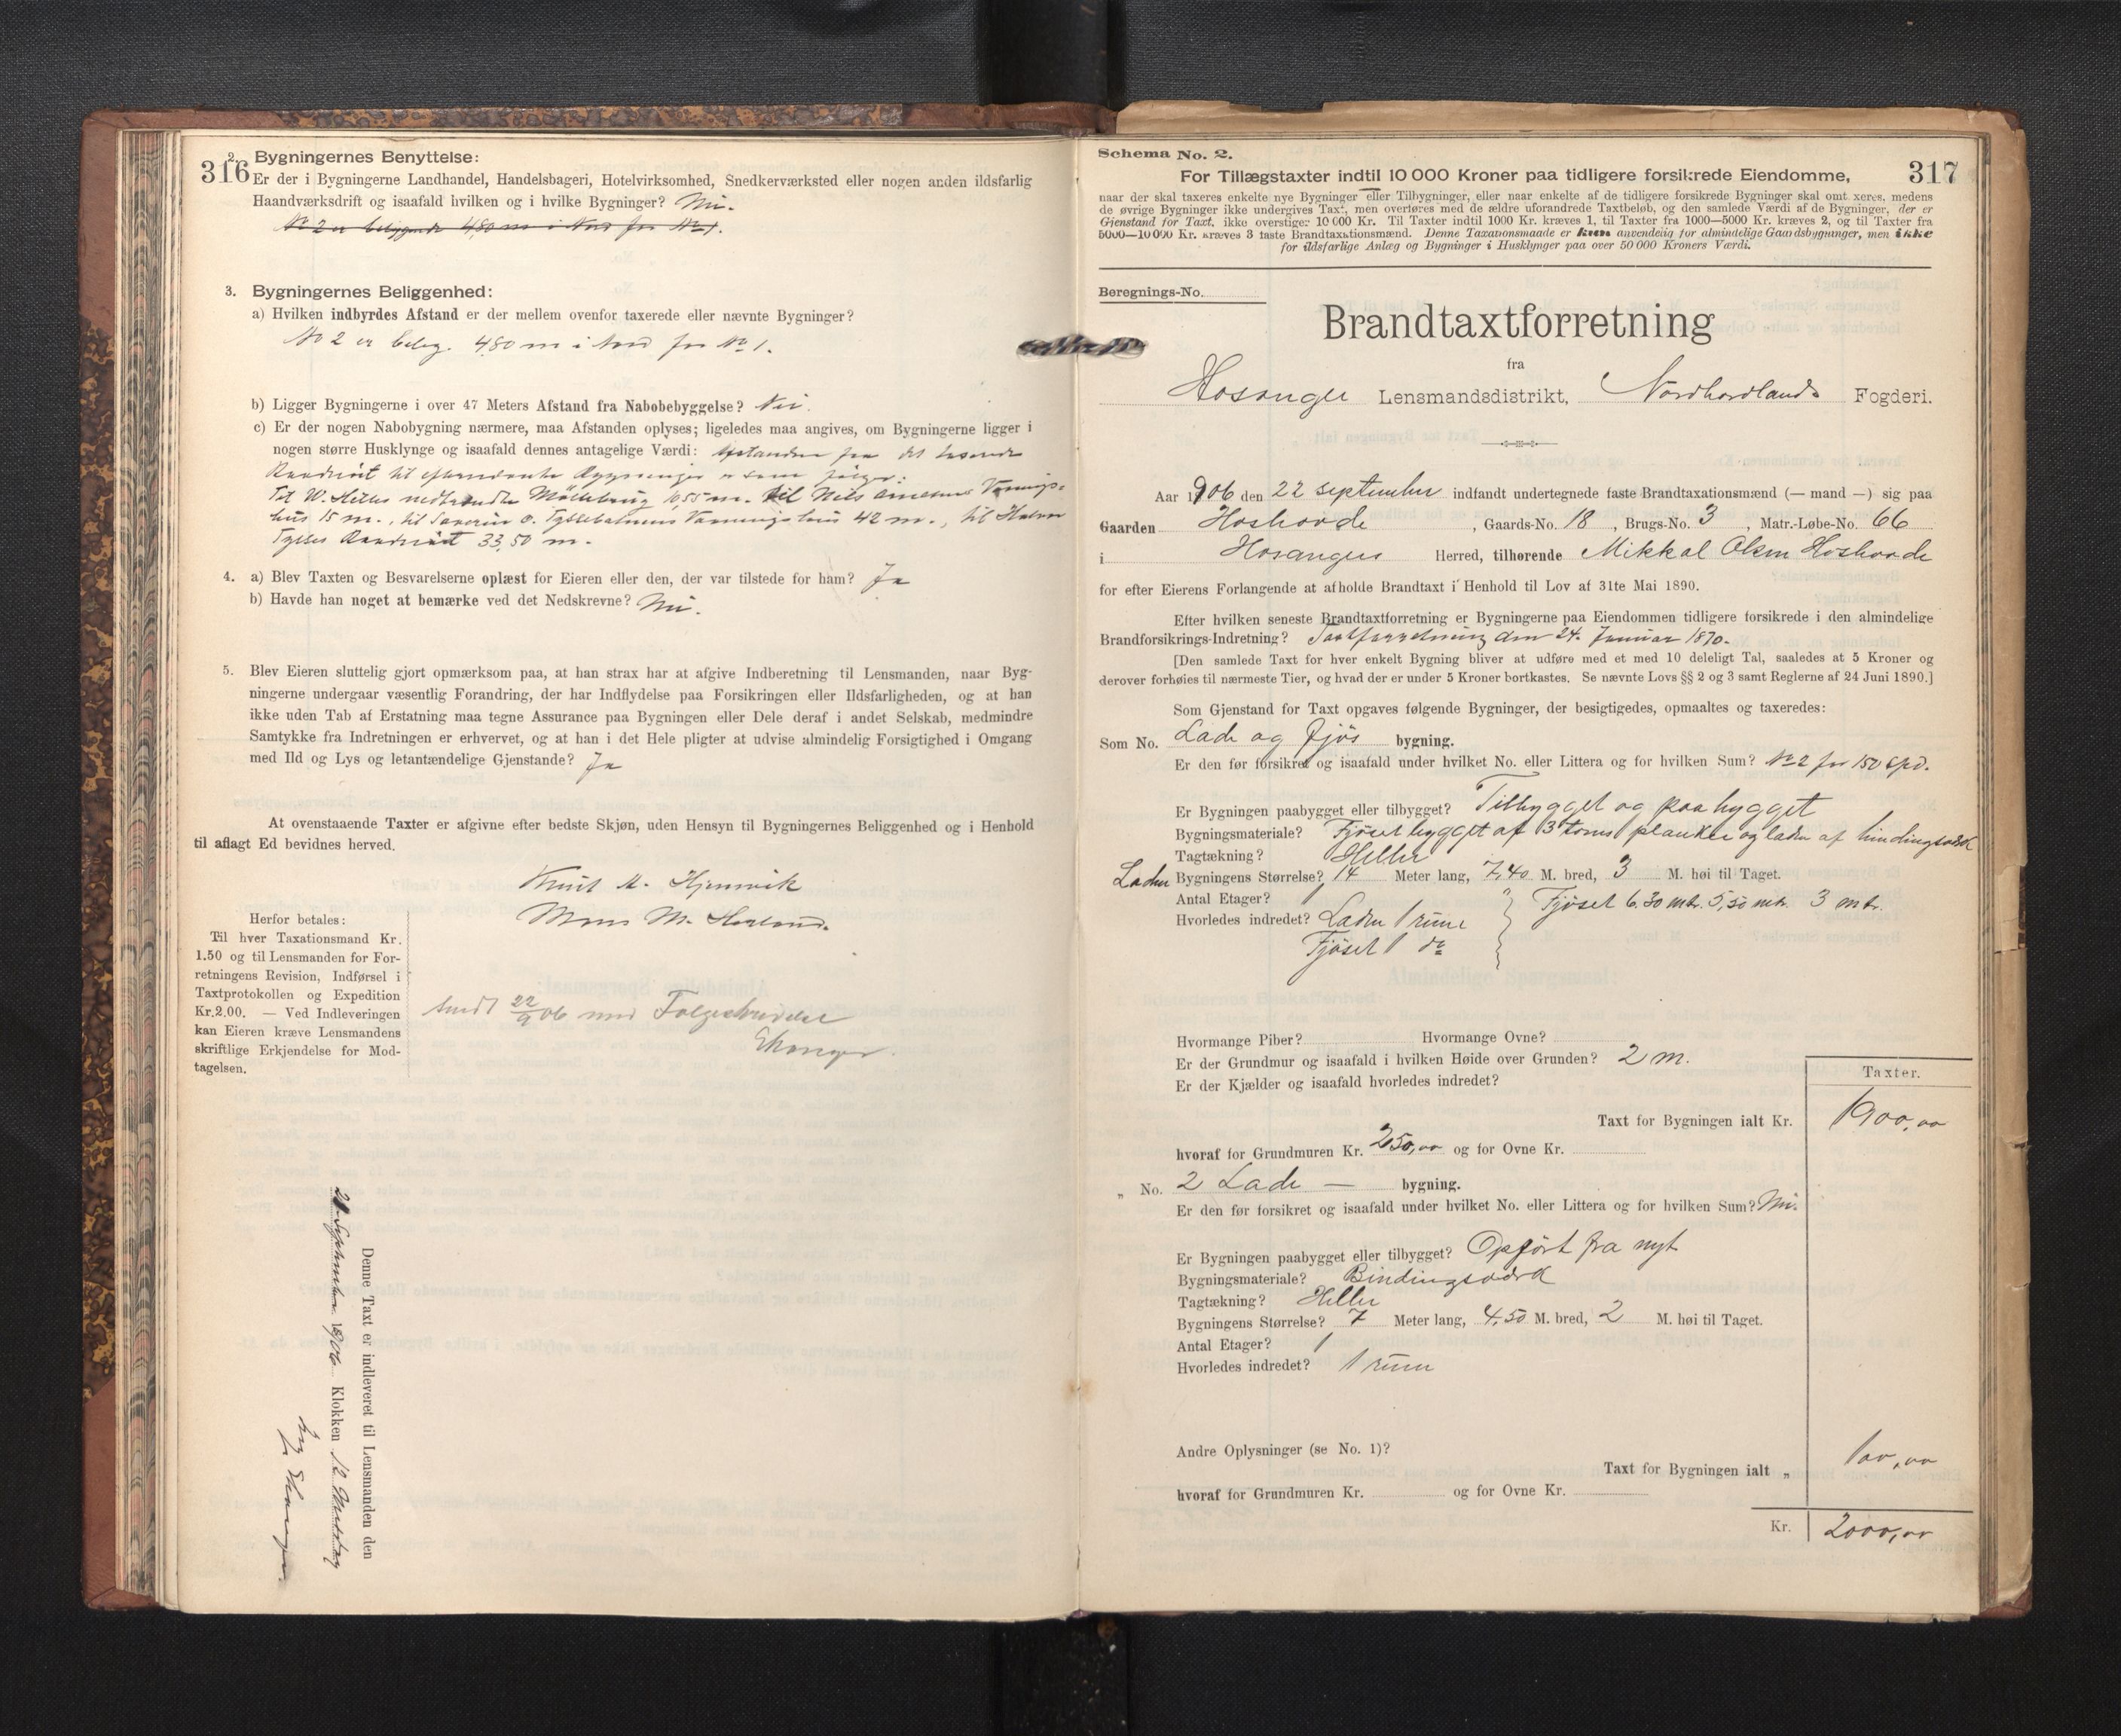 316
2. Bygningernes Benyttelse:
Er der i Bygningerne Landhandel, Handelsbageri, Hotelvirksomhed, Snedkerværksted eller nogen anden ildsfarlig
Haandværksdrift og isaafald hvilken og i hvilke Bygninger? Nei.
No 2 er beliggende 4,80 m i Nord for No 1.
3. Bygningernes Beliggenhed:
a) Hvilken indbyrdes Afstand er der mellem ovenfor taxerede eller nævnte Bygninger?
No 2 er belig. 4,80 m i Nord for No 1.
b) Ligger Bygningerne i over 47 Meters Afstand fra Nabobebyggelse? Nei.
c) Er der nogen Nabobygning nærmere, maa Afstanden oplyses; ligeledes maa angives, om Bygningerne ligger i
nogen større Husklynge og isaafald dennes antagelige Værdi: Afstanden fra det
til Bygninger er som følger:
Til W. 10,55 m. til Nils Vaanings-
hus 15 m., til Vaaningshus 42 m., til
33,50 m.
4. a) Blev Taxten og Besvarelserne oplæst for Eieren eller den, der var tilstede for ham? Ja
b) Havde han noget at bemærke ved det Nedskrevne? Nei.
5. Blev Eieren sluttelig gjort opmærksom paa, at han strax har at afgive Indberetning til Lensmanden, naar Byg-
ningerne undergaar væsentlig Forandring, der har Indflydelse paa Forsikringen eller Ildsfarligheden, og at han
ikke uden Tab af Erstatning maa tegne Assurance paa Bygningen eller Dele deraf i andet Selskab, medmindre
Samtykke fra Indretningen er erhvervet, og at han i det Hele pligter at udvise almindelig Forsigtighed i Omgang
med Ild og Lys og letantændelige Gjenstande? Ja
At ovenstaaende Taxter er afgivne efter bedste Skjøn, uden Hensyn til Bygningernes Beliggenhed og i Henhold
til aflagt Ed bevidnes herved.
Knut M. Hjemvik
Mons M. Herland.
Herfor betales:
Til hver Taxationsmand Kr.
1.50 og til Lensmanden for For-
retningens Revision, Indførsel i
Taxtprotokollen og Expedition
Kr.2.00. — Ved Indleveringen
kan Eieren kræve Lensmandens
skriftlige Erkjendelse for Mod-
tagelsen.
Sendt 22/9 06 med Følgeskrivelse
Denne Taxt er indleveret til Lensmanden den
September 1906 Klokken 12 Middag
317
Schema No. 2.
For Tillægstaxter indtil 10 000 Kroner paa tidligere forsikrede Eiendomme,
naar der skal taxeres enkelte nye Bygninger eller Tilbygninger, eller naar enkelte af de tidligere forsikrede Bygninger skal omtaxeres, medens
de øvrige Bygninger ikke undergives Taxt, men overføres med de ældre uforandrede Taxtbeløb, og den samlede Værdi af de Bygninger, der er
Gjenstand for Taxt, ikke overstiger 10 000 Kr. Til Taxter indtil 1000 Kr. kræves 1, til Taxter fra 1000—5000 Kr. kræves 2, og til Taxter fra
5000—10 000 Kr. kræves 3 faste Brandtaxationsmænd. Denne Taxationsmaade er kun anvendelig for almindelige Gaardsbygninger, men ikke
for ildsfarlige Anlæg og Bygninger i Husklynger paa over 50 000 Kroners Værdi.
Beregnings-No.
Brandtaxtforretning
fra
Hosanger Lensmandsdistrikt, Nordhordlands Fogderi.
Aar 1906 den 22 september indfandt undertegnede faste Brandtaxationsmænd (— mand —) sig paa
Gaarden Hoshovde, Gaards-No. 18, Brugs-No. 3, Matr.-Løbe-No. 66
i Hosangers Herred, tilhørende Mikkal Olsen Hoshovde
for efter Eierens Forlangende at afholde Brandtaxt i Henhold til Lov af 31te Mai 1890.
Efter hvilken seneste Brandtaxtforretning er Bygningerne paa Eiendommen tidligere forsikrede i den almindelige
Brandforsikrings-Indretning? Taxtforretning den 24. Januar 1870.
[Den samlede Taxt for hver enkelt Bygning bliver at udføre med et med 10 deleligt Tal, saaledes at 5 Kroner og
derover forhøies til nærmeste Tier, og hvad der er under 5 Kroner bortkastes. Se nævnte Lovs §§ 2 og 3 samt Reglerne af 24 Juni 1890.]
Som Gjenstand for Taxt opgaves følgende Bygninger, der besigtigedes, opmaaltes og taxeredes:
Som No. Lade og Fjøs bygning.
Er den før forsikret og isaafald under hvilket No. eller Littera og for hvilken Sum? No 2 for 150 Spd.
Er Bygningen paabygget eller tilbygget? Tilbygget og paabygget
Bygningsmateriale? Fjøset bygget af 3 toms planker og laden af bindingsværk
Tagtækning? Heller
Laden Bygningens Størrelse? 14 Meter lang, 7,40 M. bred, 3 M. høi til Taget.
Antal Etager? 1 Fjøset 6.30 mtr. 5,50 mtr. 3 mtr.
Hvorledes indredet? Laden 1 rum
Fjøset 1 do
Hvormange Piber? Hvormange Ovne?
Er der Grundmur og isaafald i hvilken Høide over Grunden? 2 m.
Er der Kjælder og isaafald hvorledes indredet?
Taxter.
Taxt for Bygningen ialt Kr. 1900,00
hvoraf for Grundmuren Kr. 250,00 og for Ovne Kr.
„ No. 2 Lade — bygning.
Er den før forsikret og isaafald under hvilket No. eller Littera og for hvilken Sum? Nei.
Er Bygningen paabygget eller tilbygget? Opført fra nyt
Bygningsmateriale? Bindingsværk
Tagtækning? Heller
Bygningens Størrelse? 7 Meter lang, 4,50 M. bred, 2 M. høi til Taget.
Antal Etager? 1
Hvorledes indredet? 1 rum
Andre Oplysninger (se No. 1)?
Taxt for Bygningen ialt „ 100,00
hvoraf for Grundmuren Kr. og for Ovne Kr.
Kr. 2000,00